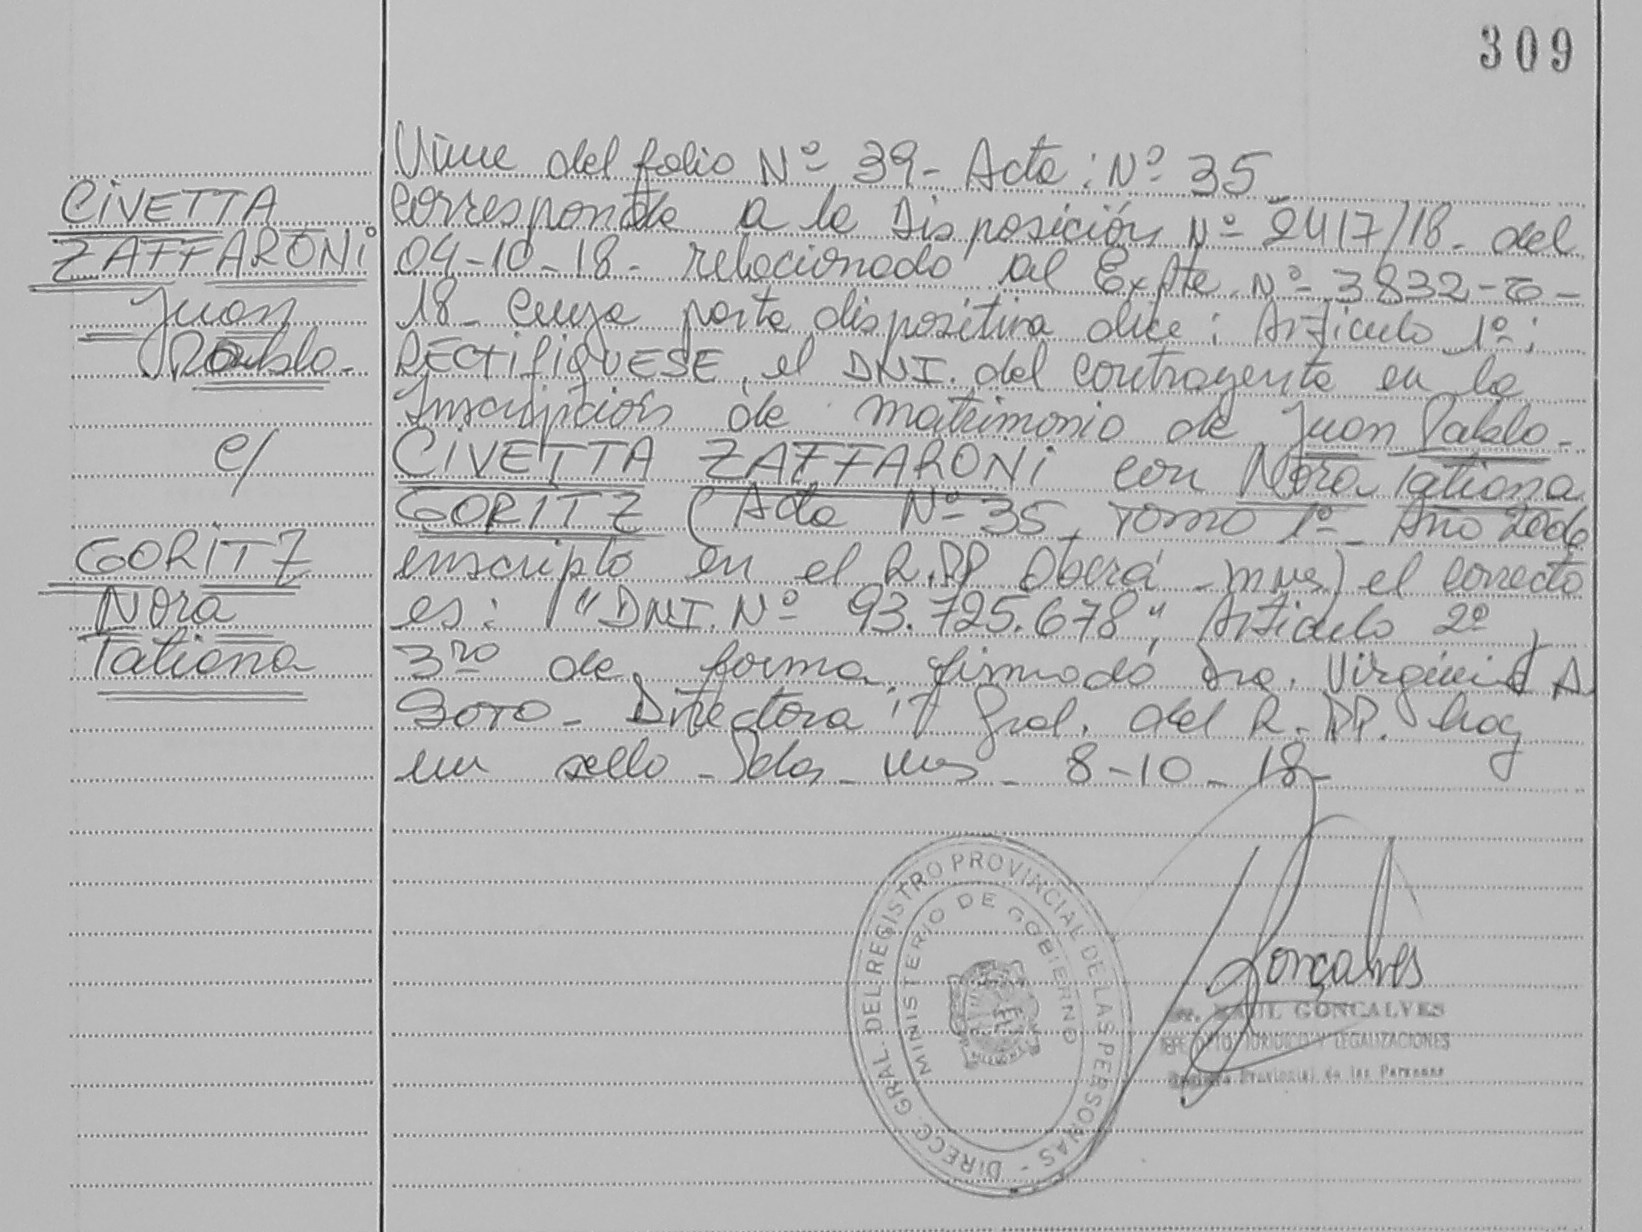 309
CIVETTA
ZAFFARONI
Juan
Pablo-
c/
GORITZ
Nora
Tatiana
Viene del folio Nº 39- Acta: Nº 35
Corresponde a la Disposición Nº 2417/18- del
04-10-18- relacionado al Expte. Nº 3832-
18- cuya parte dispositiva dice: Artículo 1º:
RECTIFIQUESE, el DNI. del contrayente en la
Inscripción de matrimonio de Juan Pablo-
CIVETTA ZAFFARONI con Nora Tatiana
GORITZ (Acta Nº 35, Tomo 1º- Año 2006
inscripto en el R.PP Oberá - mnes) el correcto
es: "DNI. Nº 93.725.678", Artículo 2º y
3ro de forma, firmado Dra. Virginia A.
SOTO- Directora Gral. del R.PP. hay
un sello- Pdas- mns- 8-10-18-
DIRECC. GRAL. DEL REGISTRO PROVINCIAL DE LAS PERSONAS -
MINISTERIO DE GOBIERNO
Gonçalves
RAUL GONCALVES
JEFE DPTO. JURIDICO Y LEGALIZACIONES
Registro Provincial de las Personas